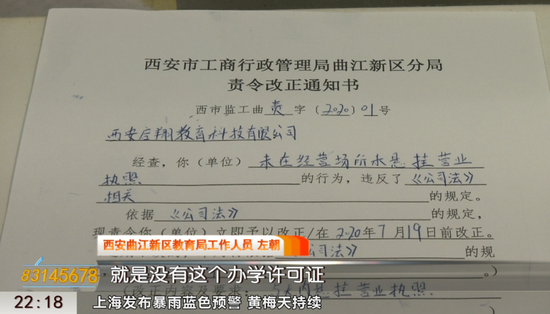 西安市工商行政管理局曲江新区分局
责令改正通知书
西市监工曲 责 字〔2020〕01号
西安启翔教育科技有限公司
经查，你（单位）未在经营场所悬挂营业
执照 的行为，违反了《公司法》
相关 的规定。
依据 《公司法》 的规定，
现责令你（单位）立即予以改正/在2020年7月19日前改正。
《公司法》 的规
西安曲江新区教育局工作人员 左朝
就是没有这个办学许可证
83145678
22:18
上海发布暴雨蓝色预警 黄梅天持续